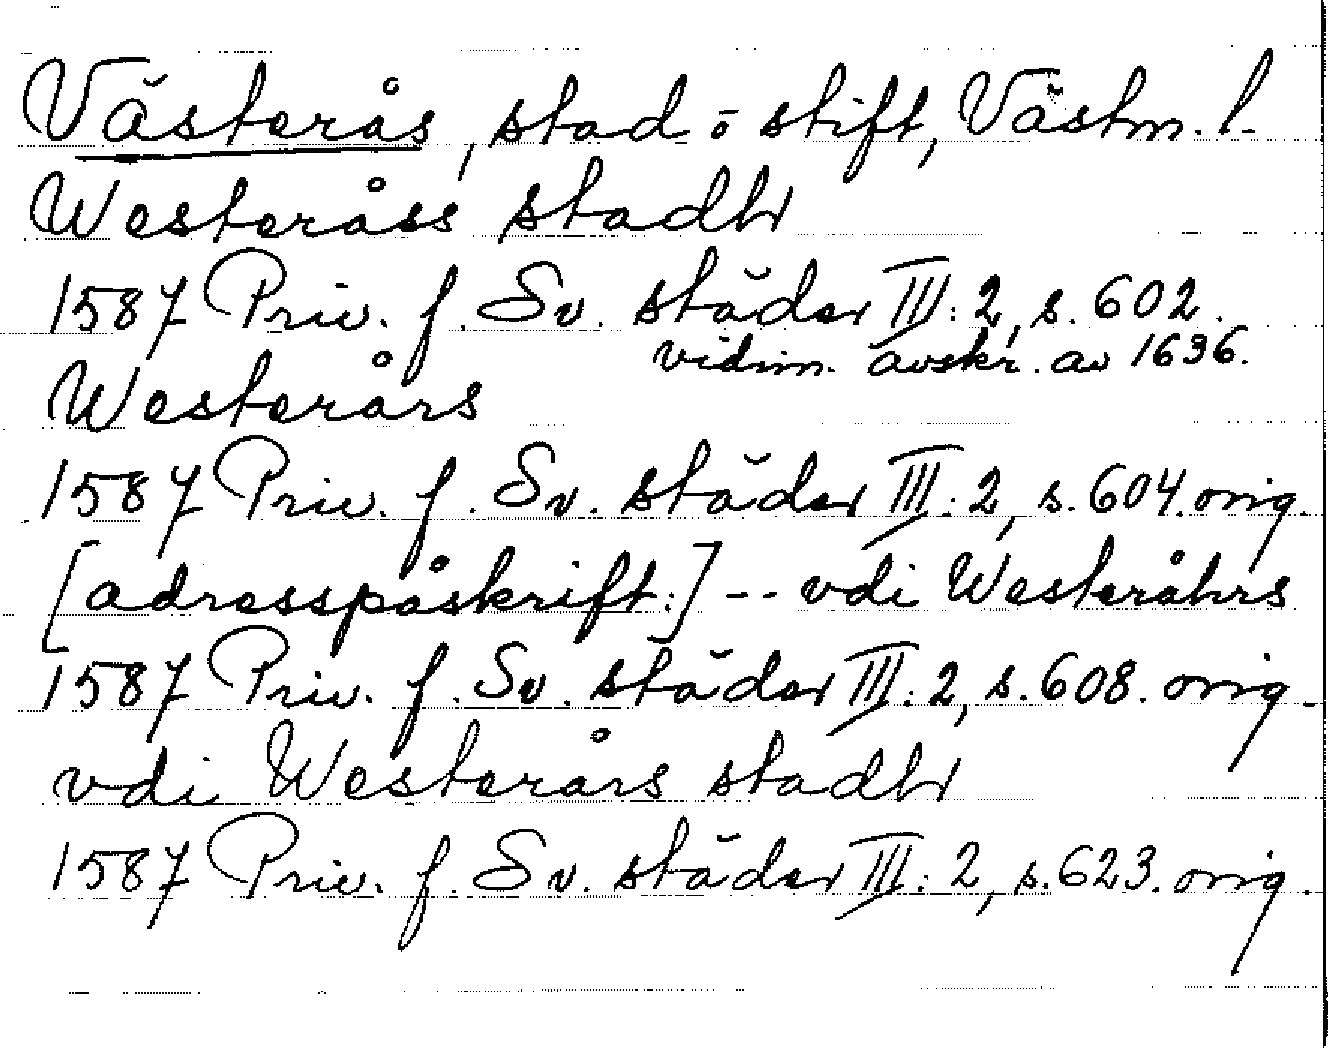 Västerås, stad o stift, Västm. l.
Westeråss stadh
1587 Priv. f. Sv. städer III: 2, s. 602.
vidim. avskr. av 1636.
Westerårs
1587 Priv. f. Sv. städer III: 2, s. 604. orig.
[adresspåskrift:] -- vdi Westeråhrs
1587 Priv. f. Sv. städer III: 2, s. 608. orig.
vdi Westerårs stadh
1587 Priv. f. Sv. städer III: 2, s. 623. orig.